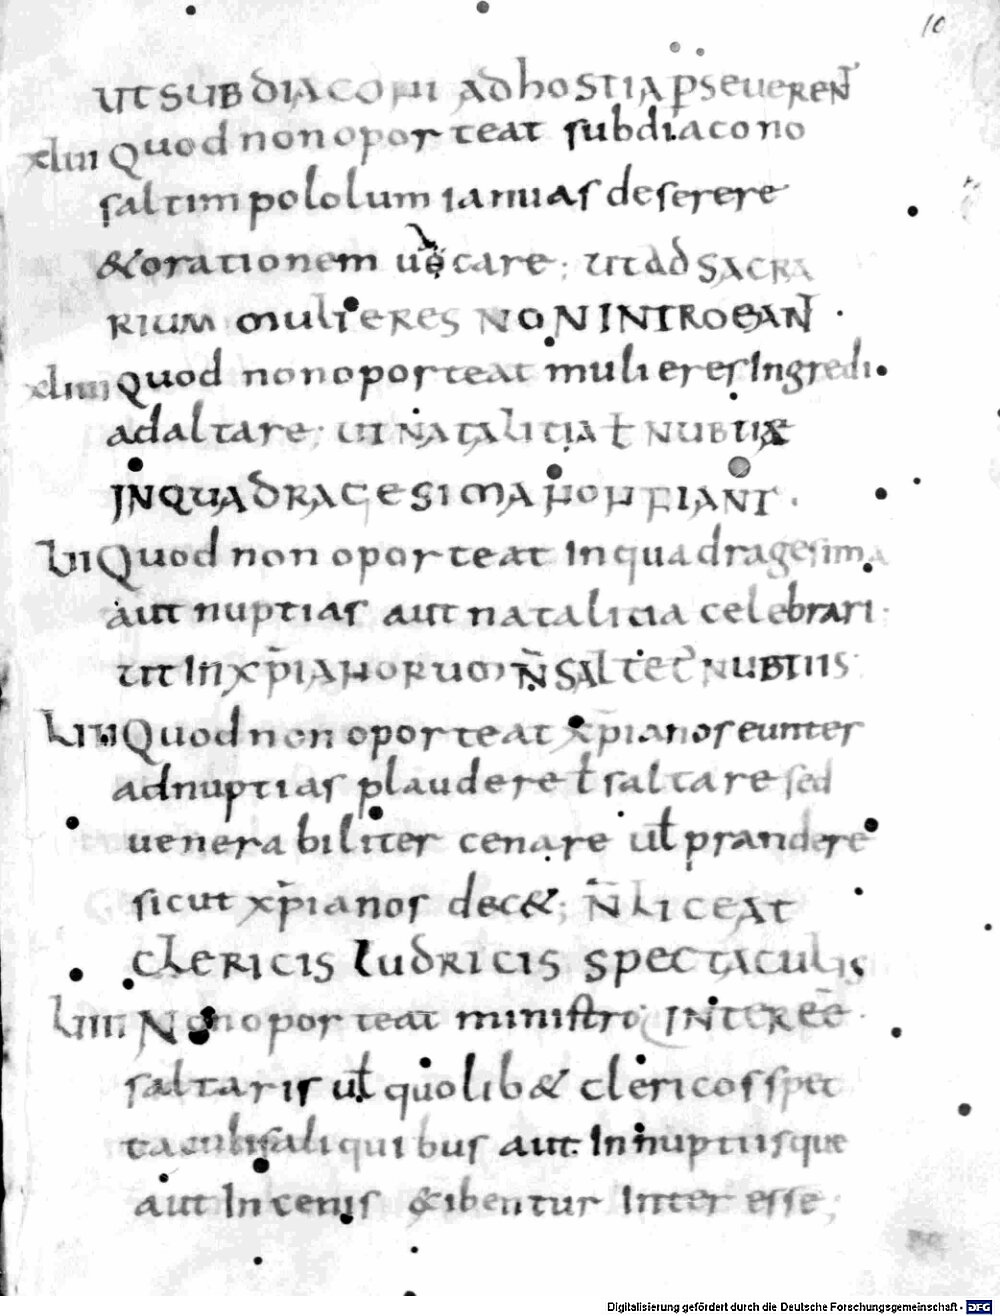 10
UT SUBDIACONI AD HOSTIA PSEUEREÑT
xliii Quod non oporteat subdiacono
saltim pololum ianuas deserere
& orationem uocare; UT AD SACRA
RIUM MULIERES NON INTROEANT ·
xliiii Quod non oporteat mulieres ingredi
ad altare; UT NATALITIA ł NUBTIAE
IN QUADRAGESIMA NON FIANT ·
lii Quod non oporteat in quadragesima
aut nuptias aut natalicia celebrari·
UT IN XP̄IANORUM N̄ SALTET̄ NUBTIIS
liii Quod non oporteat xp̄ianos euntes
ad nuptias plaudere ł saltare sed
uenerabiliter cenare uł prandere
sicut xp̄ianos dec&; N̄ LICEAT
CLERICIS LUDRICIS SPECTACULIS
liiii Non oporteat ministro INTEREĒ·
saltaris uł quolib& clericos spec
taculis aliquibus aut in nuptiisque
aut in cenis exibentur interesse;
Digitalisierung gefördert durch die Deutsche Forschungsgemeinschaft - DFG